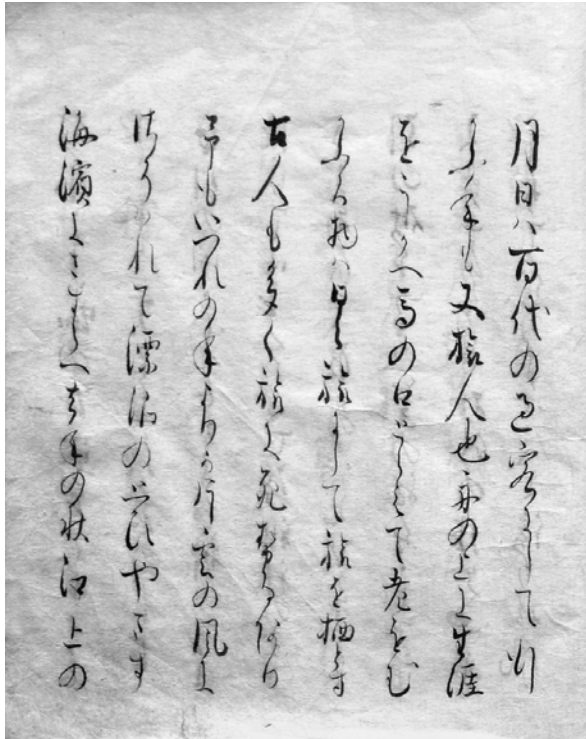 月日ハ百代の過客にして行
かふ年も又旅人也舟の上に生涯
をうかへ馬の口とらへて老をむ
かふる物ハ日々旅にして旅を栖とす
古人も多く旅に死せるあり
予もいつれの年よりか片雲の風に
さそはれて漂泊のおもひやます
海濱にさすらへ去年の秋江上の